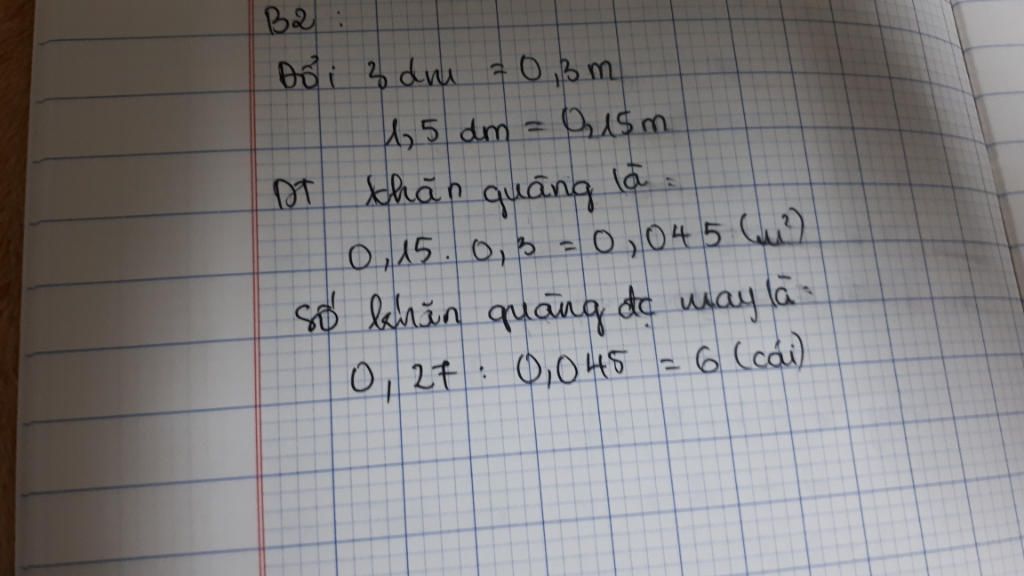 B2 :
Đổi 3 dm = 0,3 m
1,5 dm = 0,15 m
DT khăn quàng là :
0,15 . 0,3 = 0,045 (m²)
Số khăn quàng đc may là :
0,27 : 0,045 = 6 (cái)